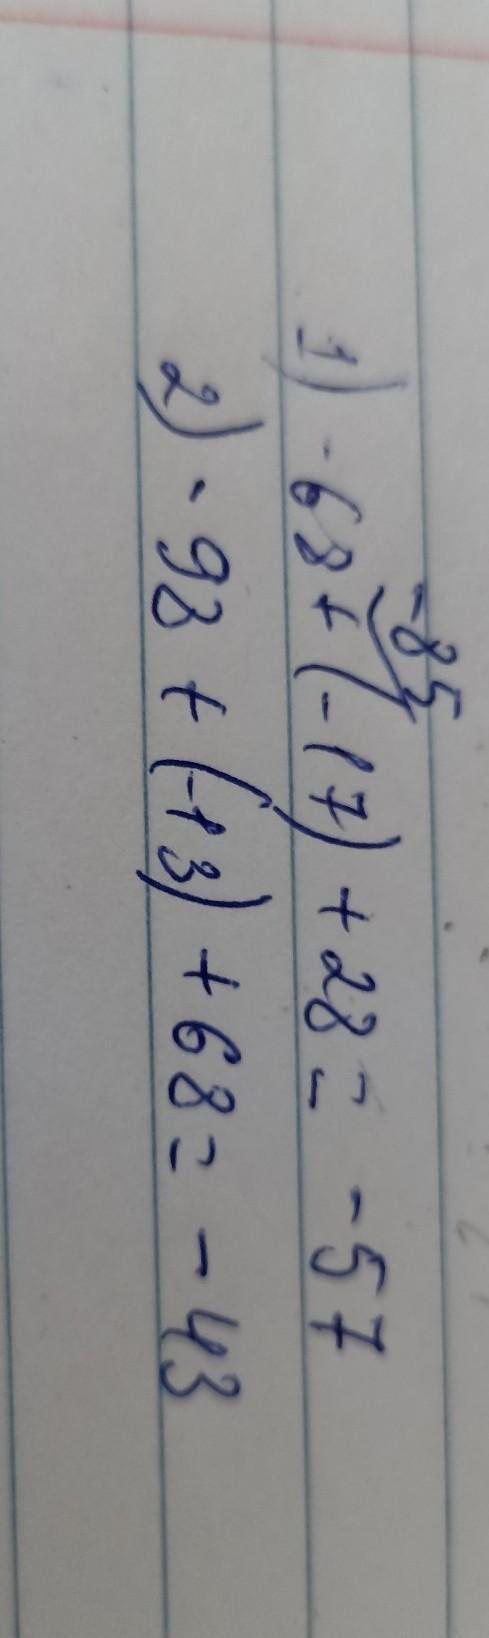 -85
1) -68 + (-17) + 28 = -57
2) -98 + (-13) + 68 = -43